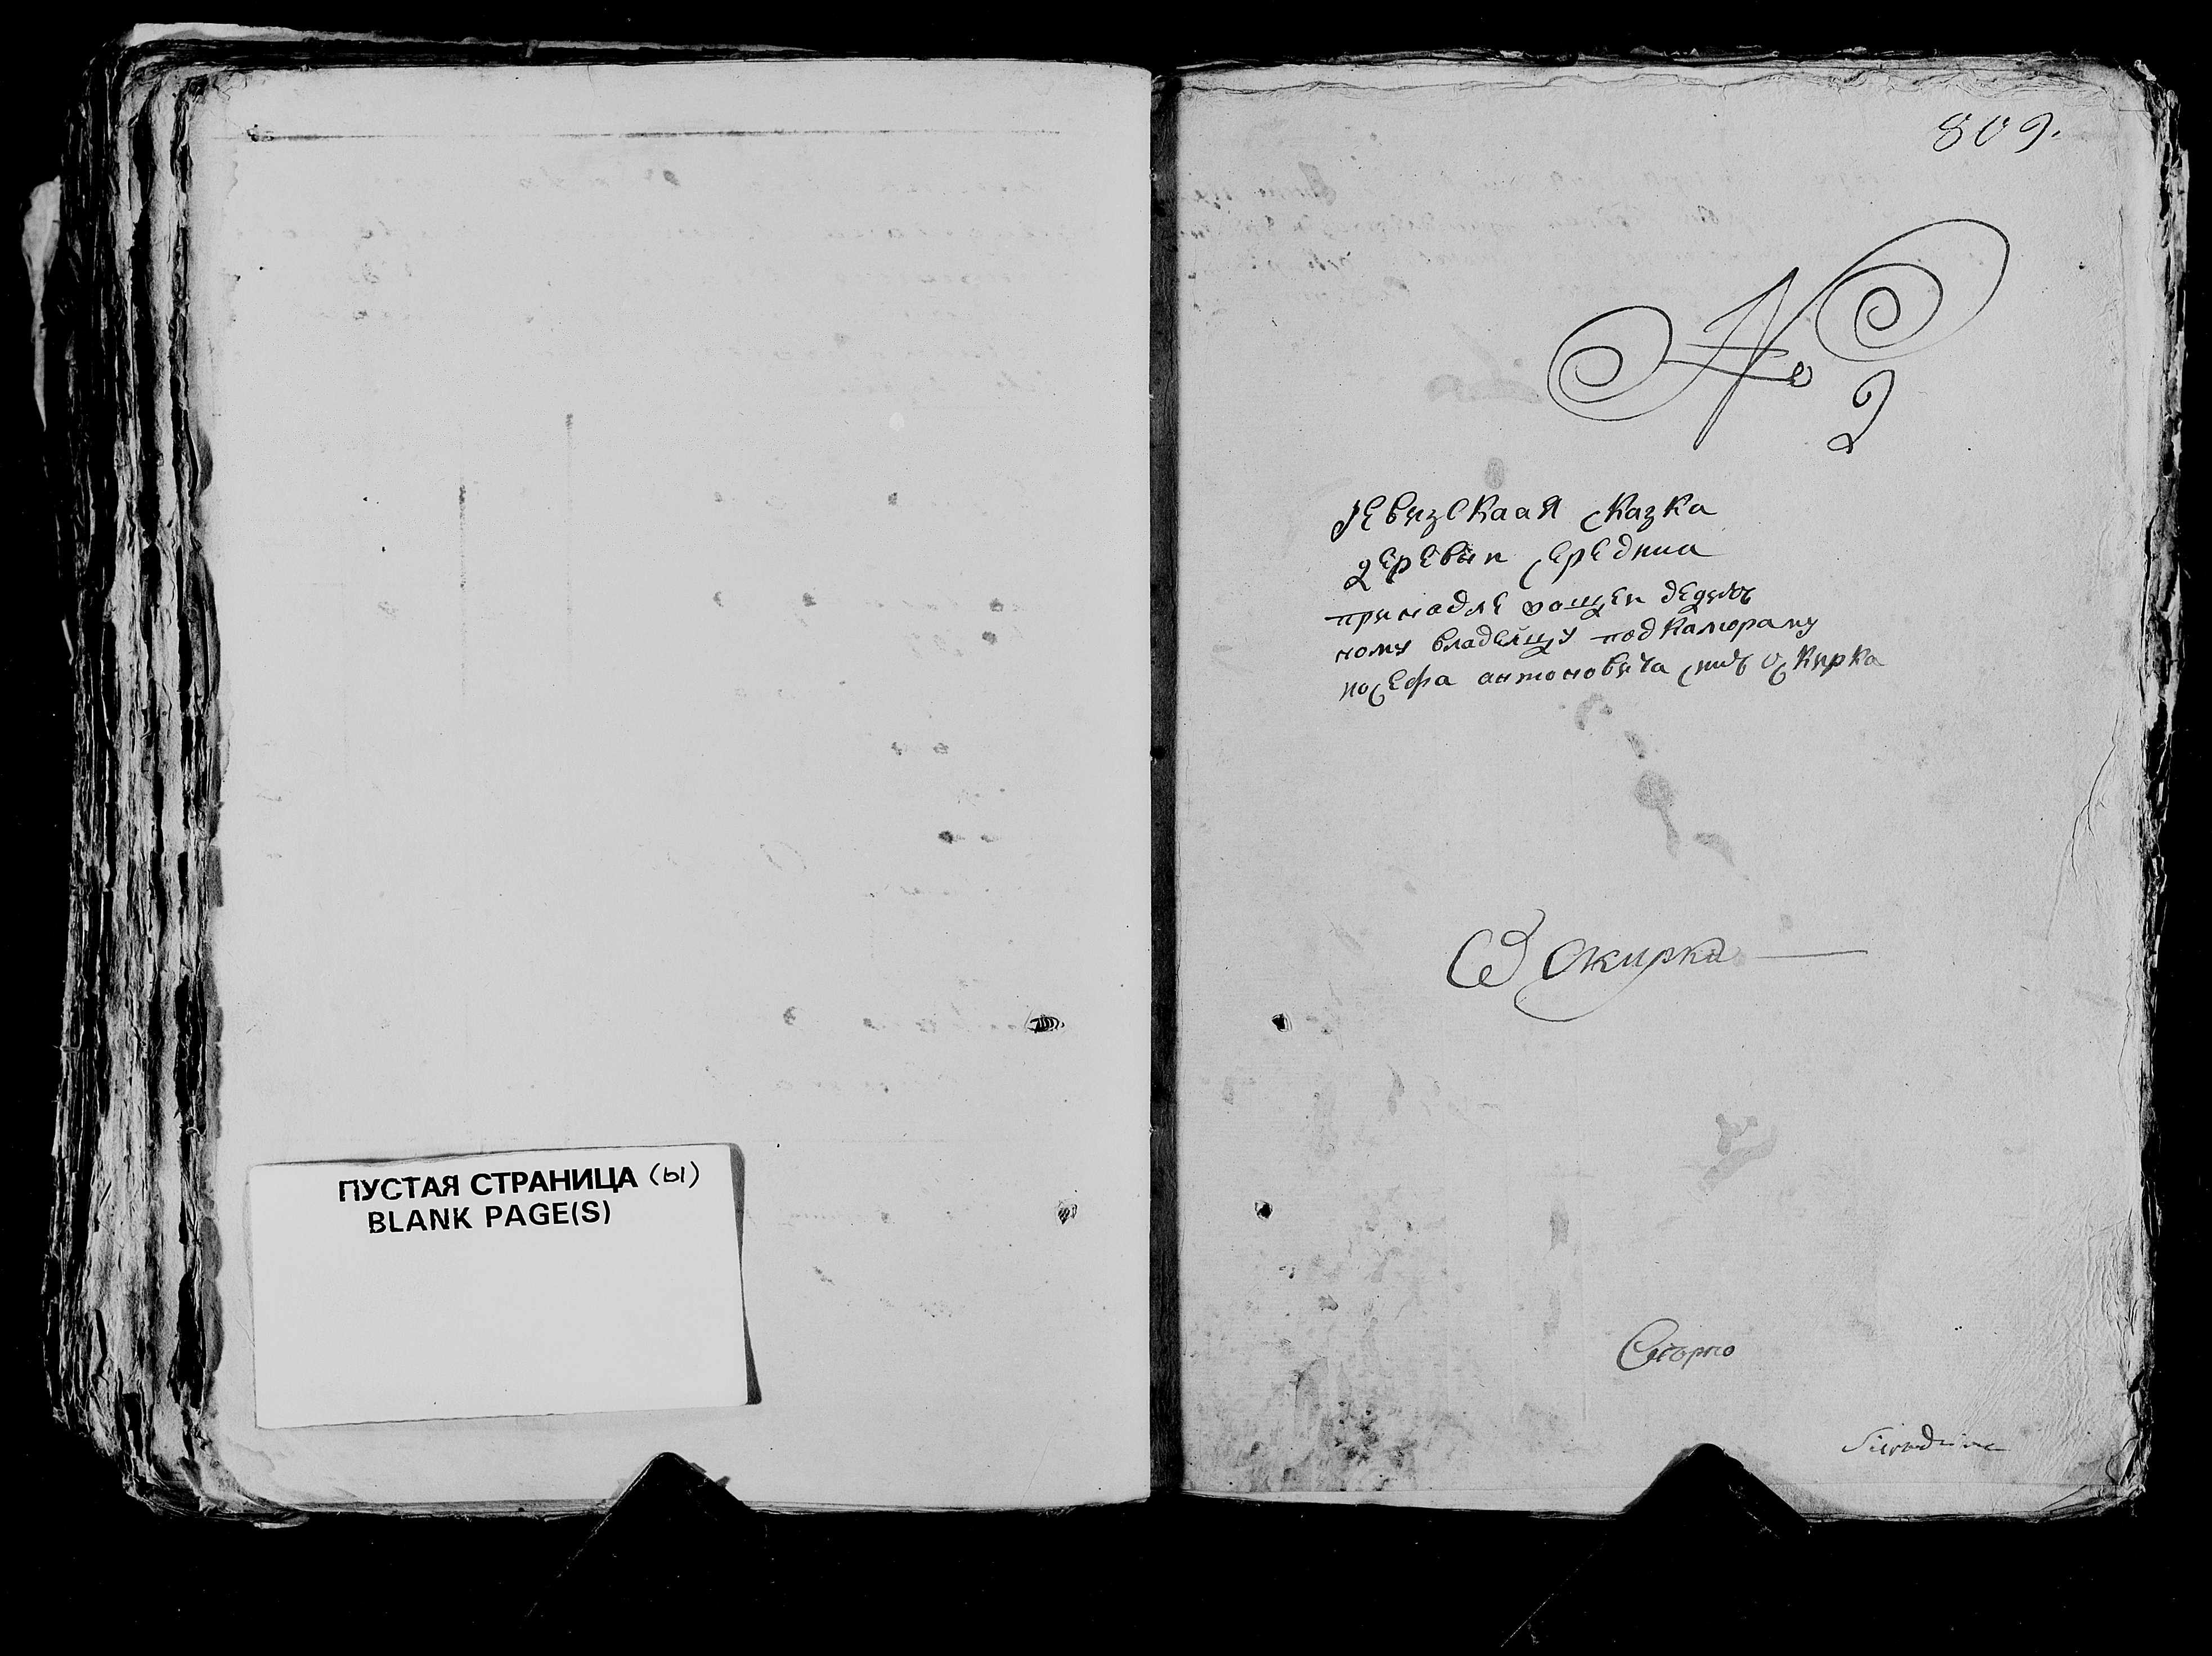 ПУСТАЯ СТРАНИЦА (ы)
BLANK PAGE(S)
809.
№ 2
ревизскаая сказка
деревни середниа
принадле жащеи дедич
ному владелцу подкаморому
иосефа антоновича снить оскирка
Оскирка